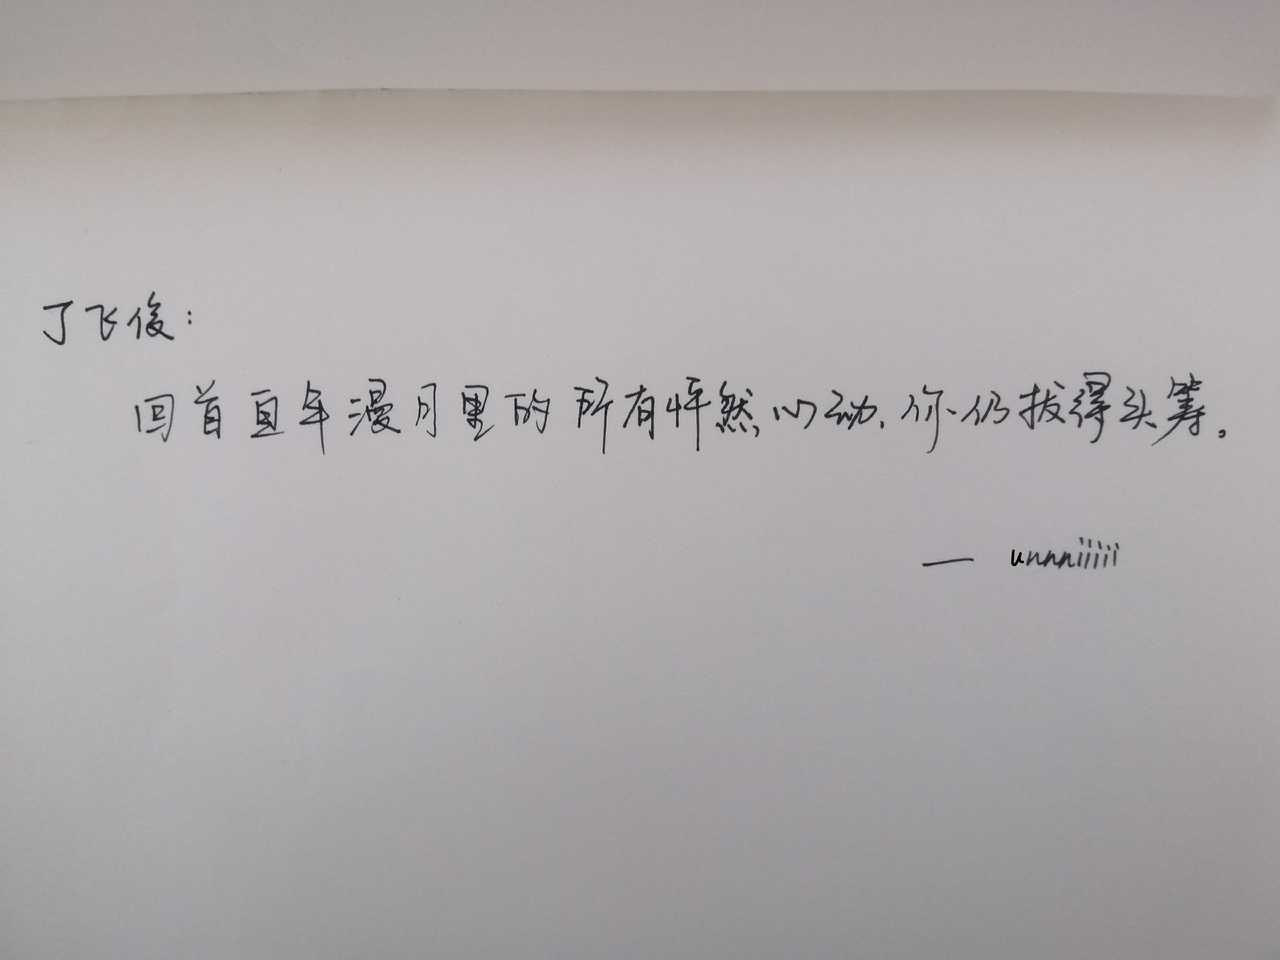 丁飞俊：
回首亘年漫月里的所有怦然心动，你仍拔得头筹。
— unnniiiii